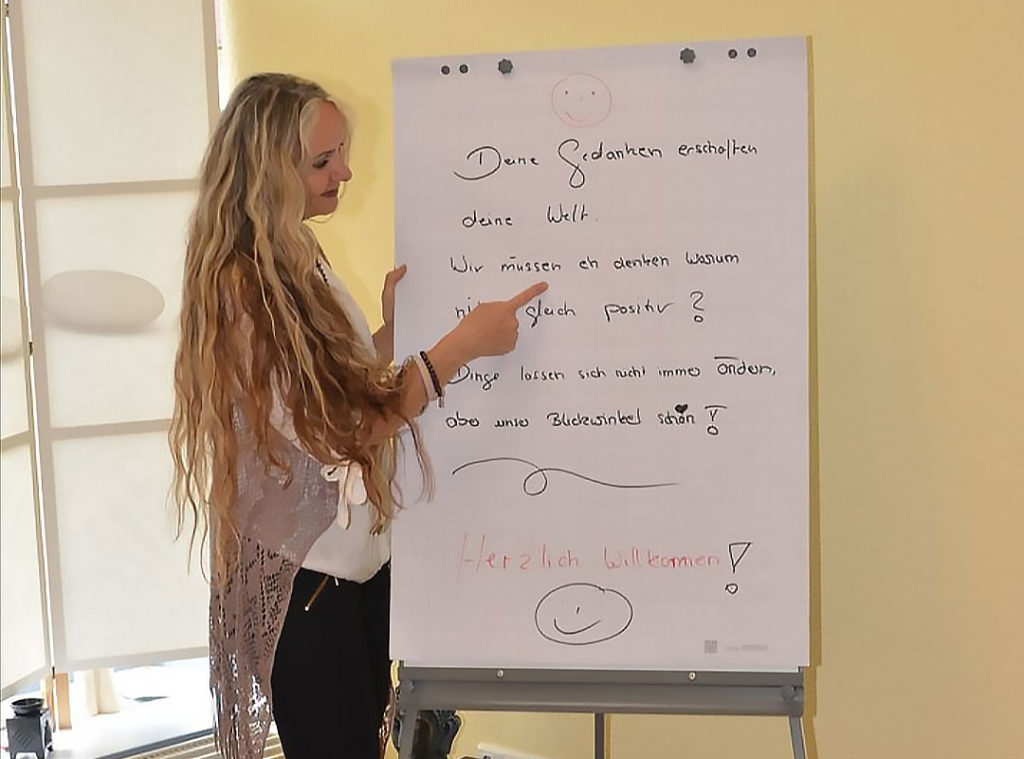 Deine Gedanken erschaffen
deine Welt.
Wir müssen eh denken warum
gleich positiv?
Dinge lassen sich nicht immer ändern,
aber unser Blickwinkel schon!
Herzlich Willkommen!